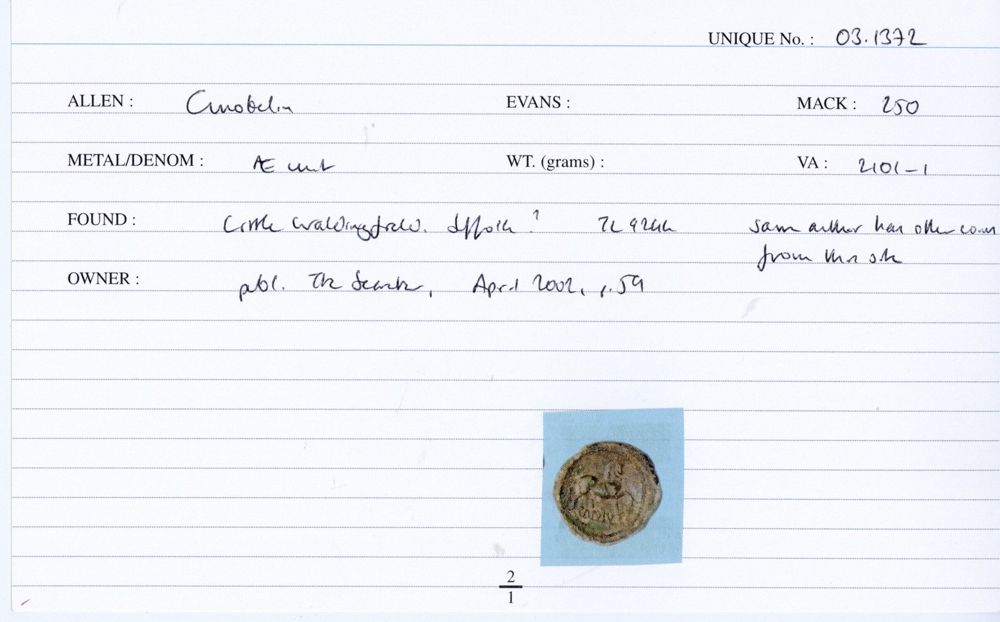 UNIQUE No. : 03.1372
ALLEN : Cunobelin EVANS : MACK : 250
METAL/DENOM : Æ unit WT. (grams) : VA : 2101-1
FOUND : Little Waldingfield. Suffolk ? TL 9244 same author has other coins
from this site
OWNER : publ. The Searcher, April 2002, p.59
2
1